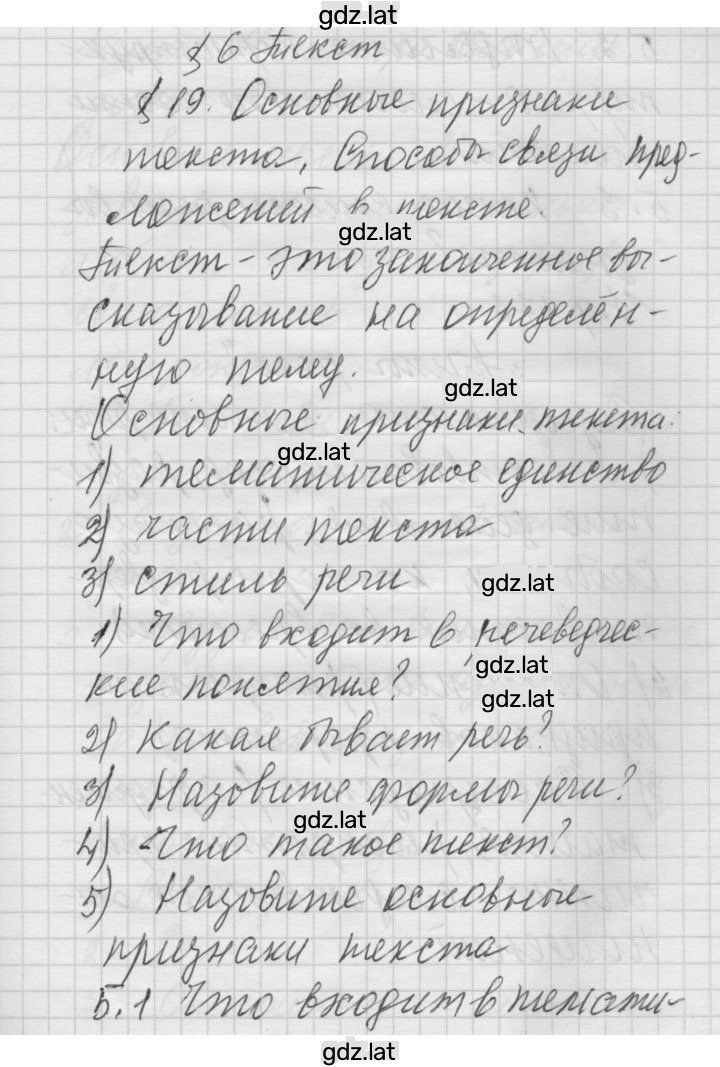 gdz.lat
§ 6 Текст
§ 19. Основные признаки
текста. Способы связи пред-
ложений в тексте.
gdz.lat
Текст - это законченное вы-
сказывание на определён-
ную тему.
gdz.lat
Основные признаки текста:
gdz.lat
1) тематическое единство
2) части текста
3) стиль речи
gdz.lat
1) Что входит в речеведчес-
gdz.lat
кие понятия?
gdz.lat
2) Какая бывает речь?
3) Назовите формы речи?
gdz.lat
4) Что такое текст?
5) Назовите основные
признаки текста
5.1 Что входит в темати-
gdz.lat